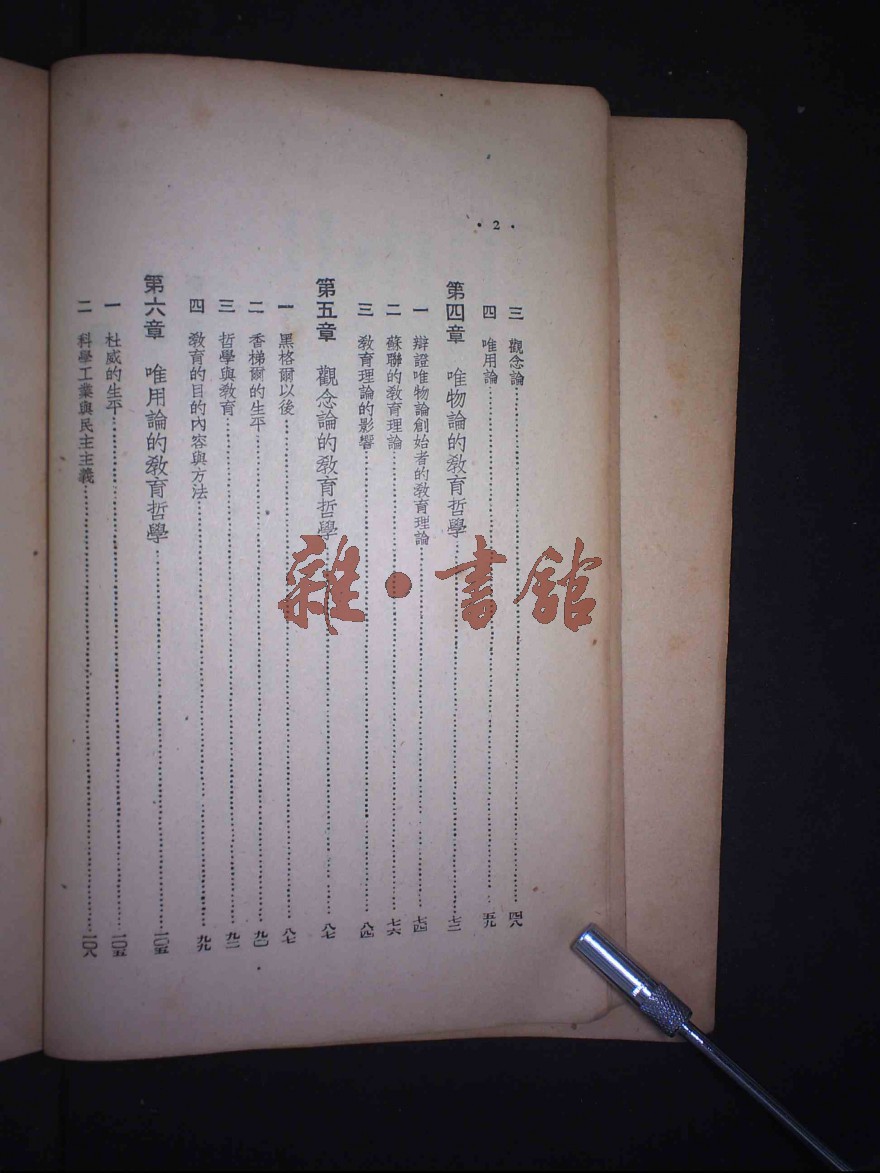 • 2 •
三 觀念論……四八
四 唯用論……五九
第四章 唯物論的教育哲學……七二
一 辯證唯物論創始者的教育理論……七四
二 蘇聯的教育理論……七六
三 教育理論的影響……八四
第五章 觀念論的教育哲學……八七
一 黑格爾以後……八七
二 香梯爾的生平……九〇
三 哲學與教育……九二
四 教育的目的內容與方法……九九
第六章 唯用論的教育哲學……一〇五
一 杜威的生平……一〇五
二 科學工業與民主主義……一〇八
雜•書館